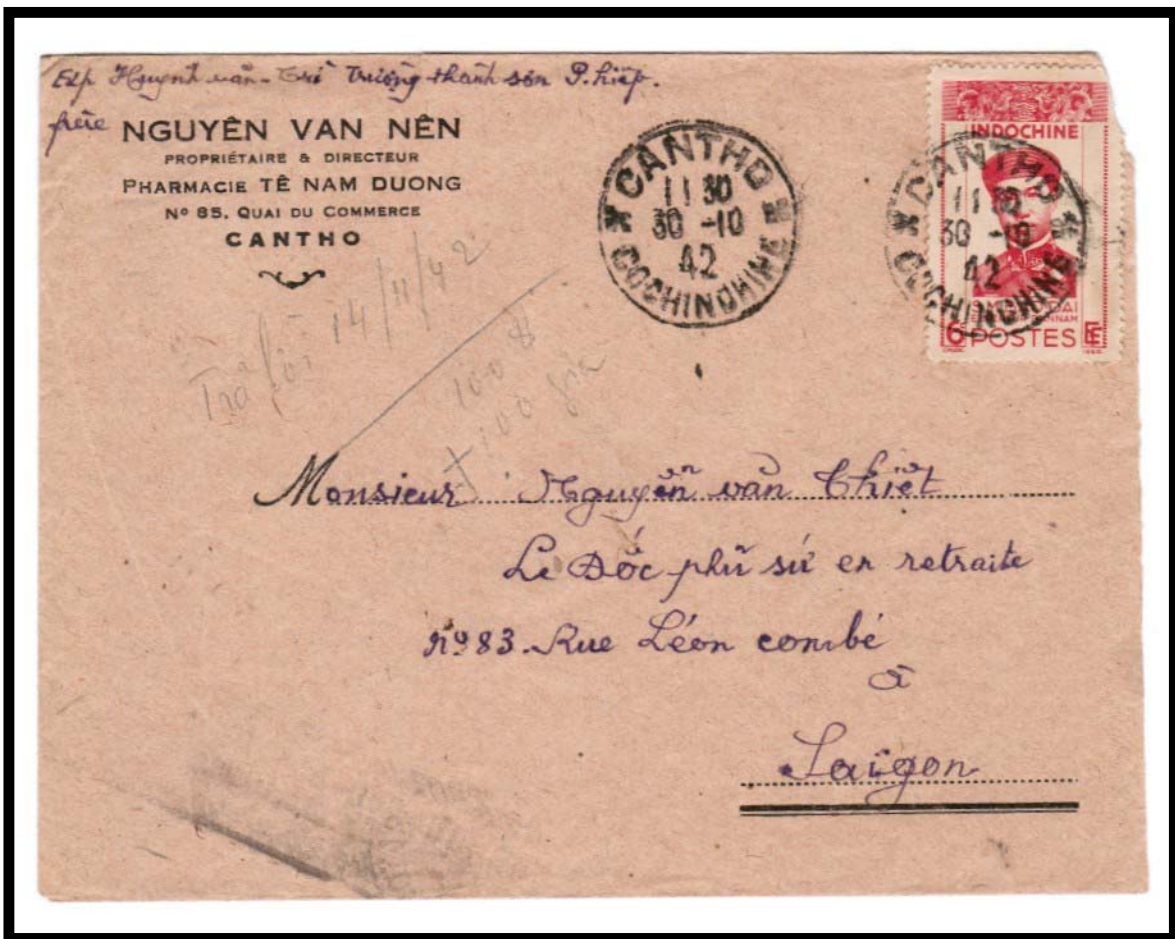 Exp Huynh văn Trí Trường thành sơn P. hiệp.
frère NGUYÊN VAN NÊN
PROPRIÉTAIRE & DIRECTEUR
PHARMACIE TÊ NAM DUONG
Nº 85, QUAI DU COMMERCE
CANTHO
CANTHO
11 30
30 -10
42
COCHINCHINE
INDOCHINE
CANTHO
11 30
30 -10
42
COCHINCHINE
6 POSTES
Trả lời 14/11/42
100 $
+ 100 giạ
Monsieur Nguyễn văn Thiệt
Le Đốc phủ sứ en retraite
Nº 83. Rue Léon combé
à
Saïgon